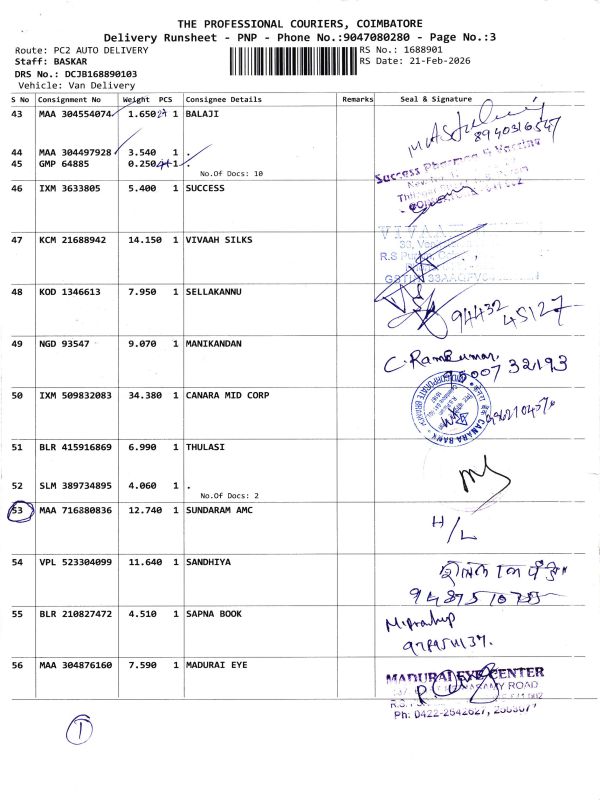 THE PROFESSIONAL COURIERS, COIMBATORE
Delivery Runsheet - PNP - Phone No.:9047080280 - Page No.:3
Route: PC2 AUTO DELIVERY RS No.: 1688901
Staff: BASKAR RS Date: 21-Feb-2026
DRS No.: DCJB168890103
Vehicle: Van Delivery
S No Consignment No Weight PCS Consignee Details Remarks Seal & Signature
43 MAA 304554074 1.650 1 BALAJI
8940316547
44 MAA 304497928 3.540 1 .
45 GMP 64885 0.250 1 .
No.Of Docs: 10
Success Pharma & Vaccine
46 IXM 3633805 5.400 1 SUCCESS
47 KCM 21688942 14.150 1 VIVAAH SILKS
VIVAAH
48 KOD 1346613 7.950 1 SELLAKANNU
94432 45127
49 NGD 93547 9.070 1 MANIKANDAN
C. Ramkumar
50 IXM 509832083 34.380 1 CANARA MID CORP
CANARA BANK
51 BLR 415916869 6.990 1 THULASI
52 SLM 389734895 4.060 1 .
No.Of Docs: 2
53 MAA 716880836 12.740 1 SUNDARAM AMC
H/L
54 VPL 523304099 11.640 1 SANDHIYA
55 BLR 210827472 4.510 1 SAPNA BOOK
56 MAA 304876160 7.590 1 MADURAI EYE
MADURAI EYE CENTER
Ph: 0422-2542627,
1